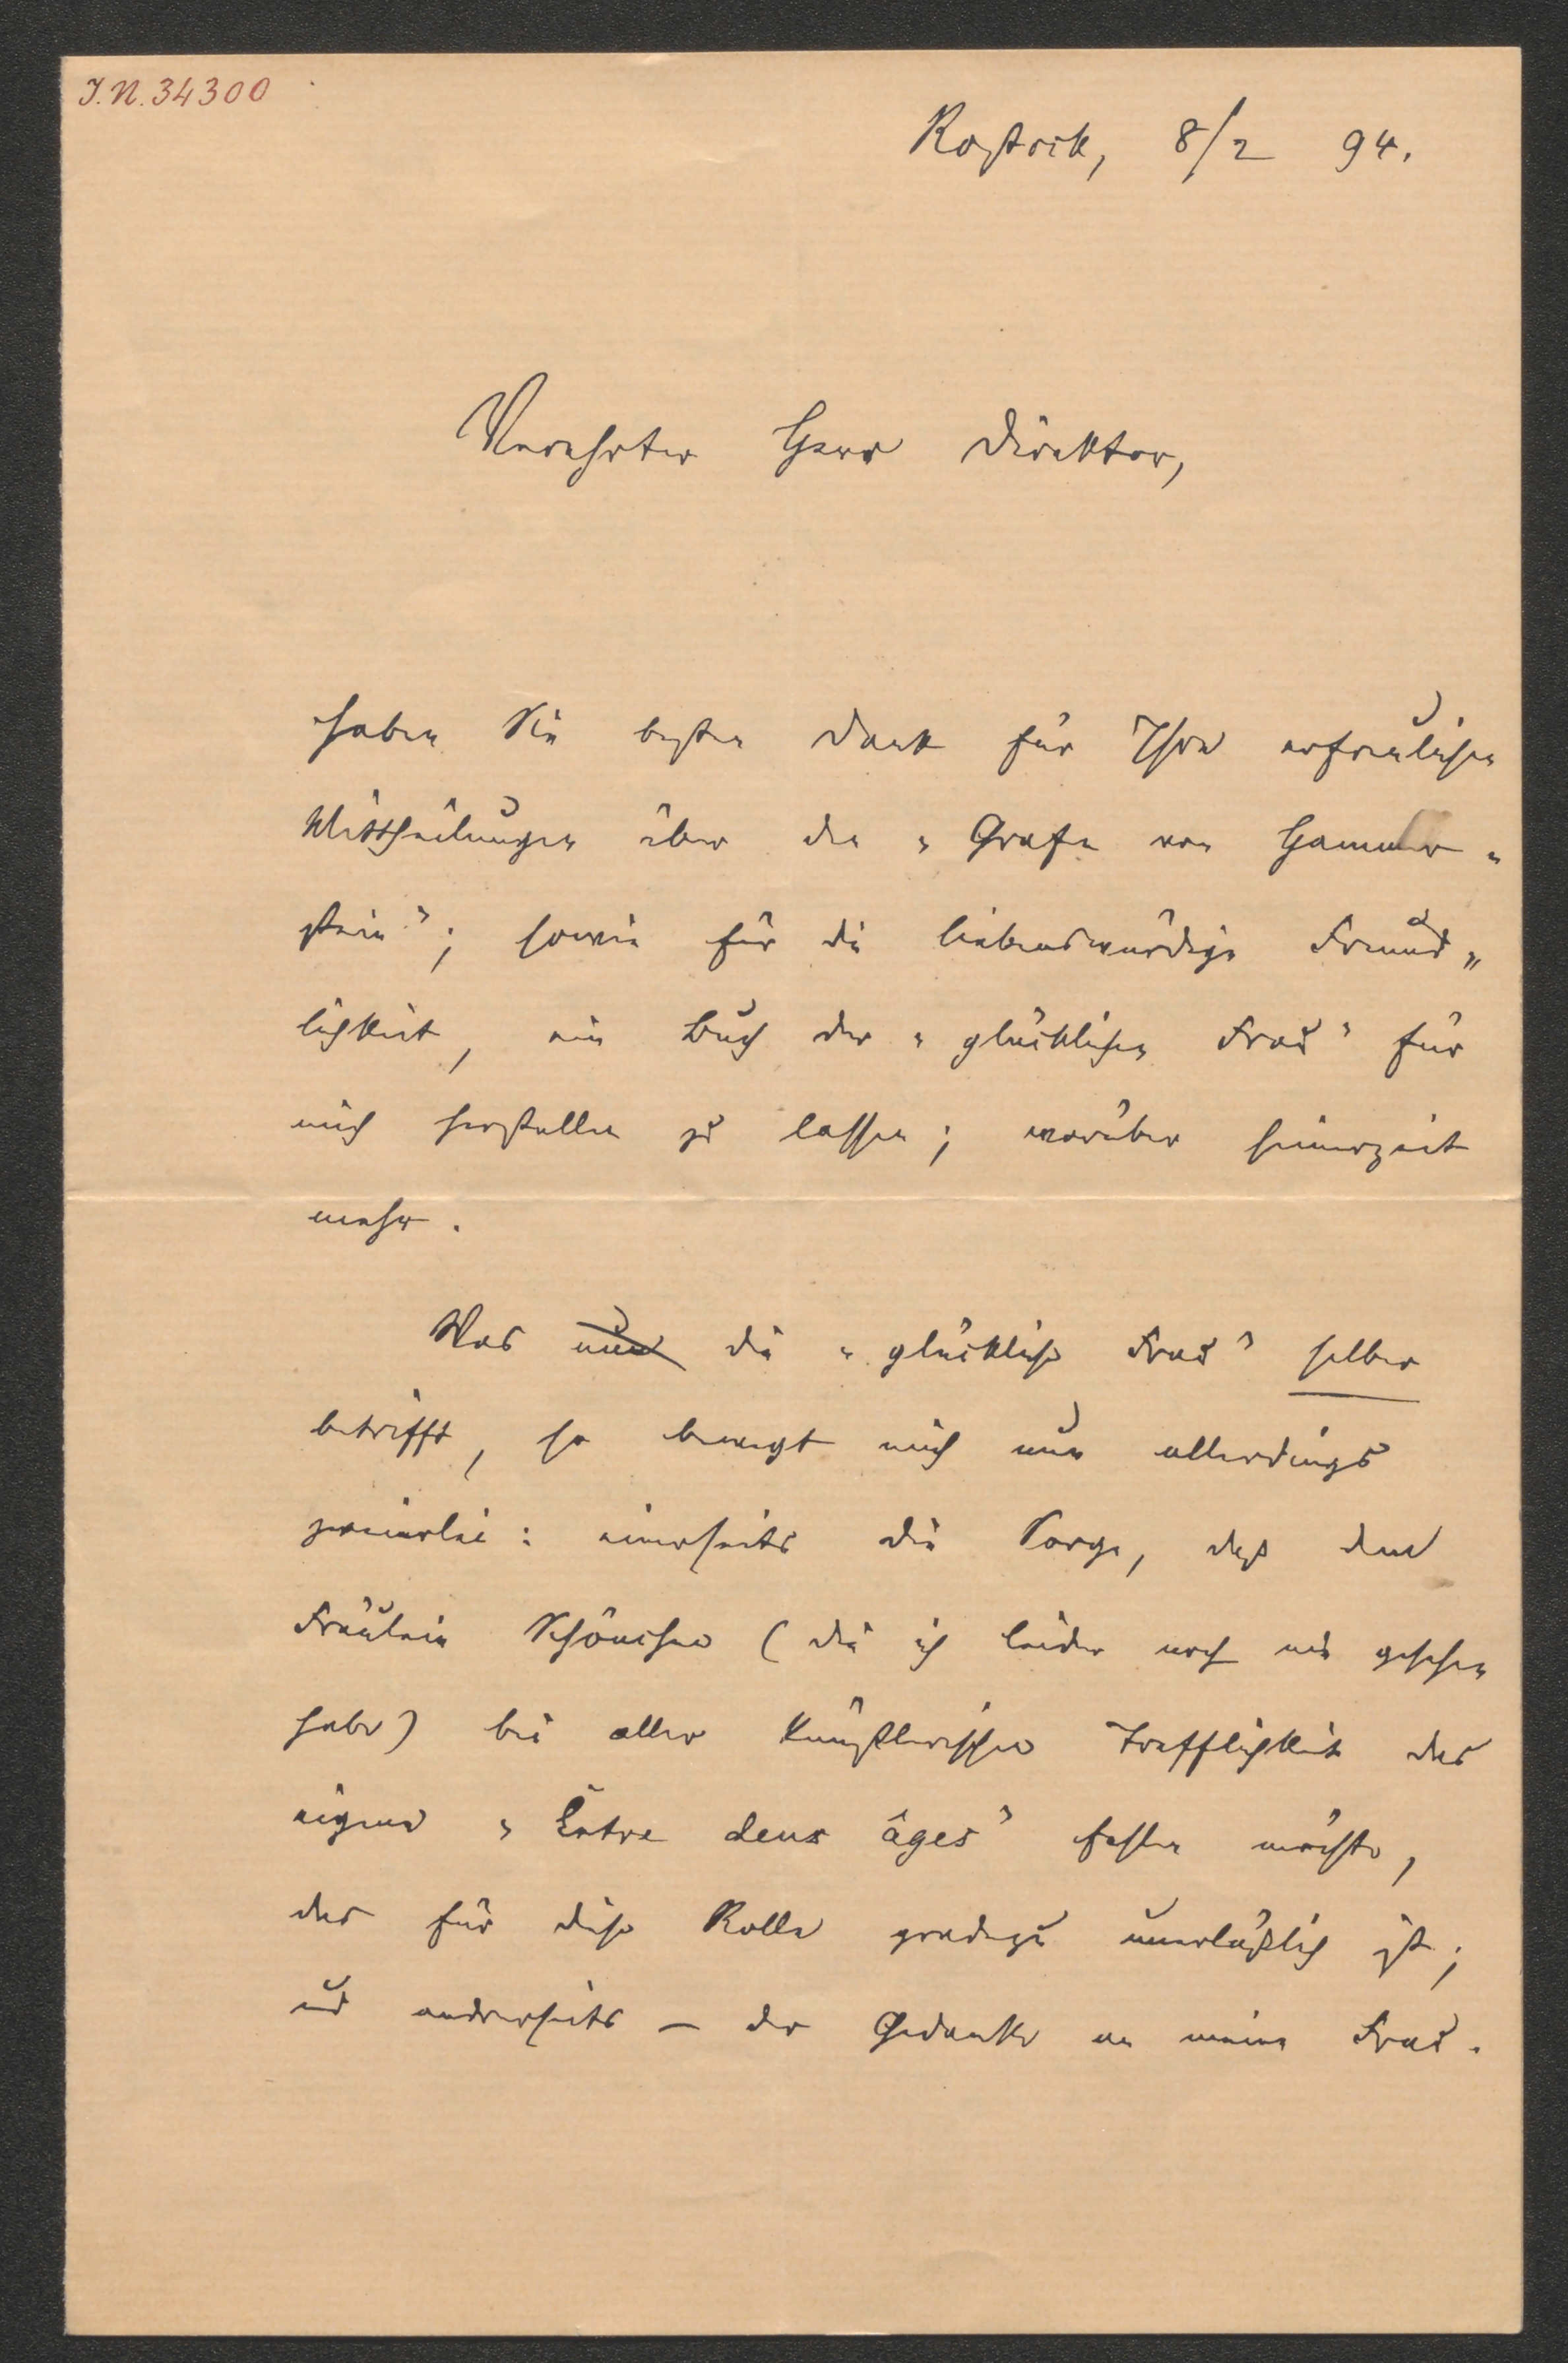 I.N. 34300
Rostock, 8/2 94.
Verehrter Herr Direktor,
haben Sie besten Dank für Ihre erfreulichen
Mittheilungen über den „Grafen von Hammer-
stein"; sowie für die liebenswürdige Freund-
lichkeit, ein Buch der „glücklichen Frau" für
mich herstellen zu lassen; worüber seinerzeit
mehr.
Was nun die „glückliche Frau" selber
betrifft, so bewegt mich nun allerdings
zweierlei: einerseits die Sorge, daß dem
Fräulein Schönchen (die ich leider noch nie gesehen
habe) bei aller künstlerischen Trefflichkeit das
eigene „Entre deux âges" fehlen möchte,
das für diese Rolle gradezu unerläßlich ist;
und andrerseits – der Gedanke an meine Frau.